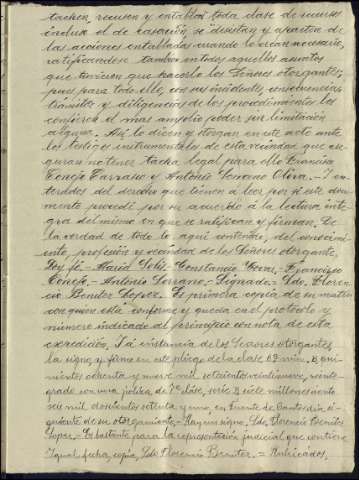 tachen, recusen y entablen toda clase de recursos
incluso el de casación, se desistan y aparten de
las acciones entabladas cuando lo crean necesario,
ratificandose tambien en todos aquellos asuntos
que tuviesen que hacerlo los Señores otorgantes,
pues para todo ello, con sus incidentes, consecuencias,
trámites y diligencias de los procedimientos les
confieren el mas amplio poder sin limitación
alguna. Asi lo dicen y otorgan en este acto ante
los testigos instrumentales de esta vecindad que ase-
guran no tener tacha legal para ello Francisco
Conejo Carrasco y Antonio Serrano Oliva.- Y en-
terados del derecho que tienen á leer por si este docu-
mento procedí por su acuerdo á la lectura inte-
gra del mismo en que se ratifican y firman. De
la verdad de todo lo aqui contenido, del conocimi-
ento, profesión y vecindad de los Señores otorgantes,
Doy fé.- David Solis.- Constancio .- Francisco
Conejo.- Antonio Serrano.- Signado.- Ldo. Floren-
cio Benitez Lopez. Es primera copia de su matriz
con quien está conforme y queda en el protocolo y
número indicado al principio con nota de esta
expedición. Y á instancia de los Señores otorgantes
la signo, y firmo en este pliego de la clase 6ª núm. quin-
ientos ochenta y nueve mil setecientos veintinueve, rein-
tegrado con una póliza de 7ª clase, serie B siete millones siento
seis mil doscientos setenta y uno, en Puente de Cantos dia si-
guiente de su otorgamiento.- Hay un signo. Ldo. Florencio Benitez
Lopez.- Es bastante para la representación judicial que contiene
Igual fecha, copia, Ldo Florencio Benitez. = Rubricados.